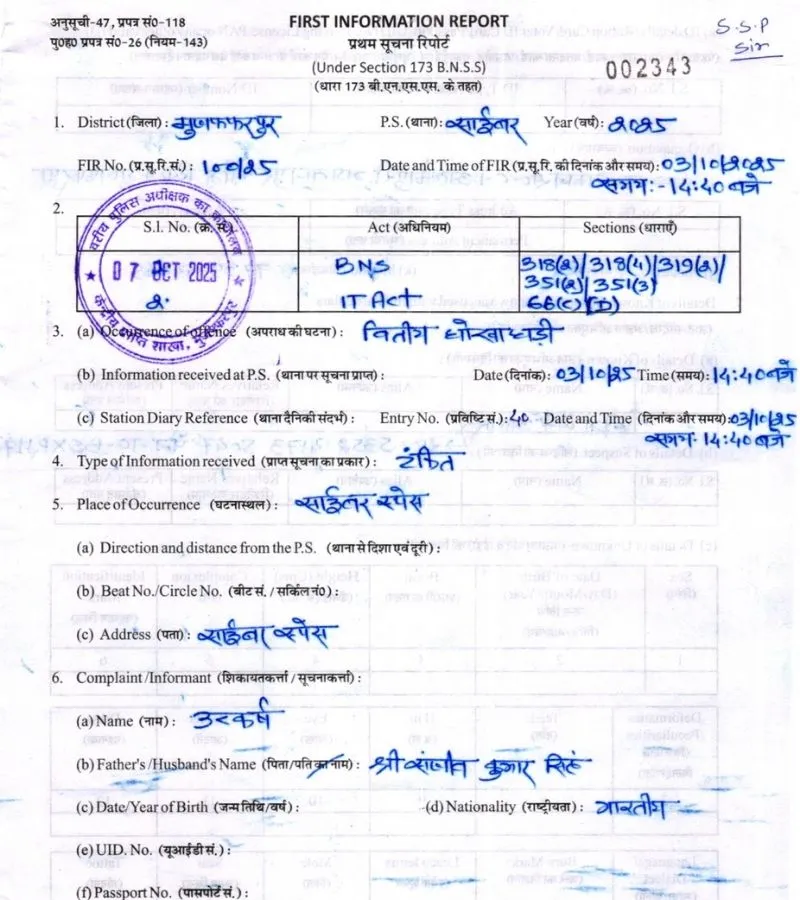 अनुसूची-47, प्रपत्र सं0-118
पु०ह० प्रपत्र सं0-26 (नियम-143)
FIRST INFORMATION REPORT
प्रथम सूचना रिपोर्ट
(Under Section 173 B.N.S.S)
(धारा 173 बी.एन.एस.एस. के तहत)
S.S.P
Sir
002343
1. District (जिला) : मुजफ्फरपुर P.S. (थाना) : साईबर Year (वर्ष) : 2025
FIR No. (प्र.सू.रि.सं.) : 100/25 Date and Time of FIR (प्र.सू.रि. की दिनांक और समय) : 03/10/2025
समय:- 14:40 बजे
2.
S.l. No. (क्र. सं.) Act (अधिनियम) Sections (धाराएँ)
वरीय पुलिस अधीक्षक का कार्यालय
07 OCT 2025
BNS 318(2)/318(4)/319(2)/
351(2)/351(3)
IT Act 66(C)(D)
3. (a) Occurrence of offence (अपराध की घटना) : वितीय धोखाधड़ी
(b) Information received at P.S. (थाना पर सूचना प्राप्त) : Date (दिनांक) : 03/10/25 Time (समय) : 14:40 बजे
(c) Station Diary Reference (थाना दैनिकी संदर्भ) : Entry No. (प्रविष्टि सं.) : 40 Date and Time (दिनांक और समय) : 03/10/25
समय 14:40 बजे
4. Type of Information received (प्राप्त सूचना का प्रकार) : टंकित
5. Place of Occurrence (घटनास्थल) : साईबर स्पेस
(a) Direction and distance from the P.S. (थाना से दिशा एवं दूरी) :
(b) Beat No./Circle No. (बीट सं. / सर्किल नं०) :
(c) Address (पता) : साईबर स्पेस
6. Complaint/Informant (शिकायतकर्त्ता / सूचनाकर्त्ता) :
(a) Name (नाम) : उत्कर्ष
(b) Father's /Husband's Name (पिता/पति का नाम) : श्री संजीव कुमार सिंह
(c) Date/Year of Birth (जन्म तिथि/वर्ष) : (d) Nationality (राष्ट्रीयता) : भारतीय
(e) UID. No. (यूआईडी सं.) :
(f) Passport No. (पासपोर्ट सं.) :